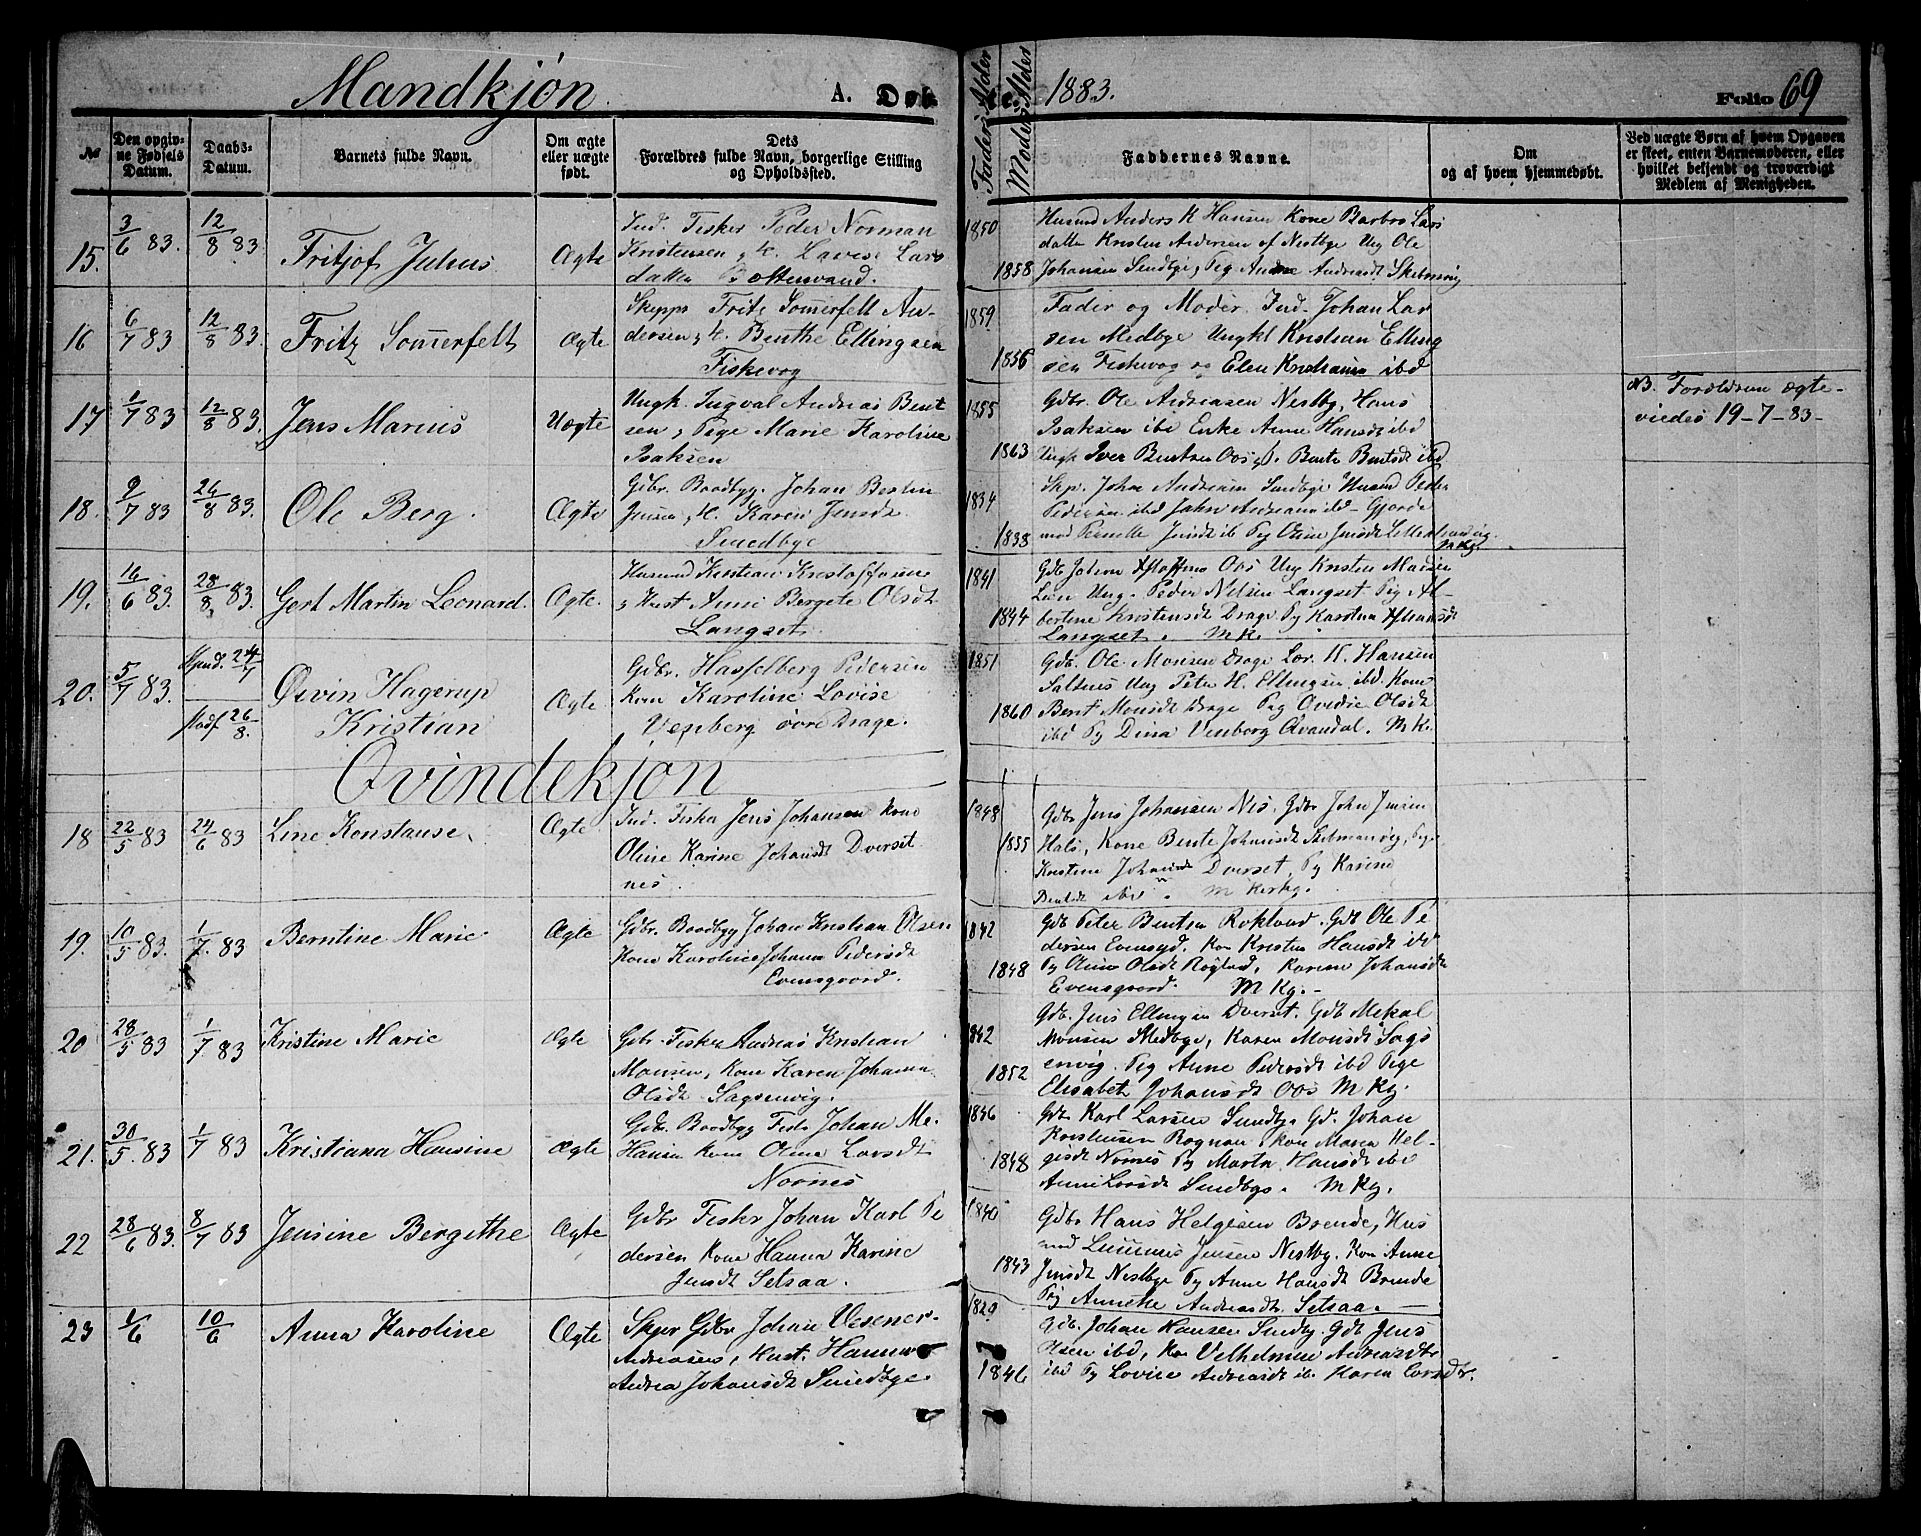 Mandkjön. A. Døb te. 1883. Folio 69
№
Den opgivne Fødsels Datum.
Daabs-Datum.
Barnets fulde Navn.
Om ægte eller uægte født.
Dets Forældres fulde Navn, borgerlige Stilling og Opholdssted.
Faders Alder
Moders Alder
Faddernes Navne.
Om og af hvem hjemmedøbt.
Ved uægte Børn af hvem Opgaven er skeet, enten Barnemoderen, eller hvilket bekjendt og troværdigt Medlem af Menigheden.
15. 3/6 83. 12/8 83. Fritjof Julius Ægte
Ind. Fisker Peder Norman
Kristensen, K. Lovise Lars
datter Bottenvand.
1850
1858
Husmd Anders K Hansen Kone Barbro Lars
datter Kristen Andersen af Nestbye Ung Ole
Johansen Sundbye, Pig Andreasdt
16 6/7 83 12/8 83. Fritz Sommerfelt Ægte
Skipps Fritz Sommerfelt An-
dersen, K. Benthe Ellingsen
Fiskevog
1859
1856
Fader og Moder. Ind. Johan Lar
sen Medbye Ungkl Kristian Elling
sen Fiskevog og Elen ibd
17 1/7 83 12/8 83. Jens Marius Uægte
Ungk. Ingval Andreas Bent
sen, Pige Marie Karoline
Isaksen
1855
1863
Gdbr. Ole Andreasen Nestby, Hans
Isaksen ibd Enke Anne Hansdt ibd
Ungk Iver Bentsen Oos, P. Bente Bentsdt ibd
NB. Forældrene ægte-
viedes 19-7-83-
18. 9/7 83 26/8 83. Ole Berg. Ægte
Gdbr. Baadbyg. Johan
Jensen, K. Karen Jensdt.
Smedbye
1834
1838
Skp. John Andreasen Sundbye Husmd Peder
Pedersen ibd John Andreasen ibd
Pernille Jensdt ib Pig Jensdt
19. 16/6 83. 28/8 83. Gert Martin Leonard. Ægte.
Husmd Kristian Kristoffersen
, Hust Anne Bergete Olsdt
Langset
1841
1844
Gdb Johan Oos Ung Kristen Madsen
Ung. Peder Nilsen Langset Pig Al-
bertine Kristensdt Drage Pg Karoline
Langset. M K.
20. 5/7 83. 24/7 26/8. Osvin Hagerup
Kristian Ægte
Gdbr. Hasselberg Pedersen
Kone Karoline Lovise
Venberg övre Drage.
1851
1860
Gdb. Ole Monsen Drage Lör. K. Hansen
Saltnes Ung Peter H. Ellingsen ibd. Kone
Berit Monsdt Drage Pig Ovidie Olsdt
ibd Pg Dina Venborg Qvandal. M K.
Qvindekjön
18 22/5 83 24/6 83 Line Konstanse. Ægte
Ind. Fisker Jens Johansen Kone
Oline Karine Johansdt Dverset
nes.
1848
1855
Gdbr Jens Johansen Nes. Gdbr John Jensen
Hals, Kone Bente Johansdt Skilmanöig, Pige
Kristine Johansdt Dverset, Pg Karine
Bentsdt ibd. M Kirkg.
19. 10/5 83. 1/7. 83 Berntine Marie Ægte
Gdbr. Baadbyg Johan Kristian Olsen
Kone Karoline Johanna Pedersdt
Evensgaard.
1842
1848
Gdb Peter Bentsen Rokland. Gdb Ole Pe
dersen Evensgd. Kon Kristin Hansdt ibd
Pg Olsdt Røgland, Karen Johansdt
Evensgaard. M Kg.-
20 28/5 83 1/7 83 Kristine Marie Ægte
Gdbr. Fisker Andreas Kristian
Monsen, Kone Karen Johanna
Olsdt Sagsenvig.
1842
1852
Gdb. Jens Ellingsen Dverset. Gdb Mekal
Monsen Medbye, Karen Monsdt Sags
envig. Pig Anne Pedersdt ibd Pige
Elisabet Johansdt Oos M Kg.
21. 30/5. 83 1/7 83 Kristiana Hansine Ægte
Gdbr. Baadbyg Fisk Johan Me.
Hansen Kone Olina Larsdt
Nornes
1846
1848
Gdb. Karl Larsen Sundby. Gd. Johan
Karstensen Rognan, Kon Maren Hel-
gesdt Nornes Pg Marta Hansdt ibd
Anne Larsdt Sundbye. M Kg.
22 28/6 83. 8/7 83 Jensine Bergithe Ægte
Gdbr Fisker Johan Karl Pe
dersen Kone Hanna Karine
Jensdt Setsaa.
1840
1843
Gdbr Hans Helgesen Brende, Hus
md Jensen Nestby. Kon Anne
Jensdt Nestbye Pg Anne Hansdt Brende
Pig Annette Andreasdt. Setsaa.
23 1/6 10/6 Anna Karoline Ægte
Skper Gdbr Johan Vesener.
Andreasen, Hust. Hanna
Andrea Johansdt Smedbye.
1829
1846
Gdb. Johan Hansen Sundby. Gdb Jens
Olsen ibd, Kon Vilhelmine Andreasdtr
ibd Pg Lovise Andreasdt ib. Karen Larsdtr.